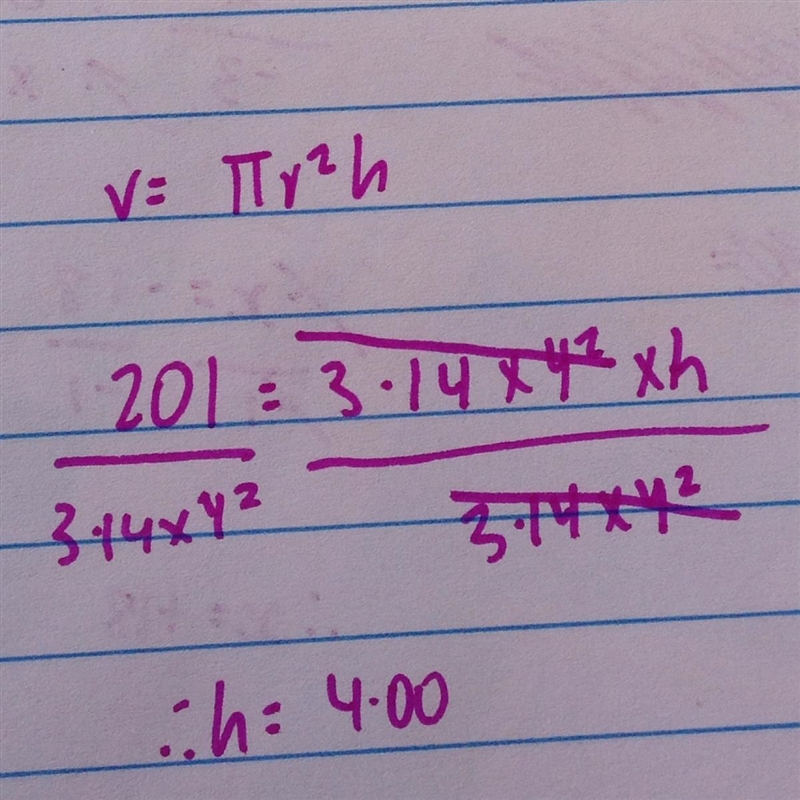 v= πr²h
201 = 3·14 x 4² xh
3·14 x 4² 3·14 x 4²
∴h= 4·00